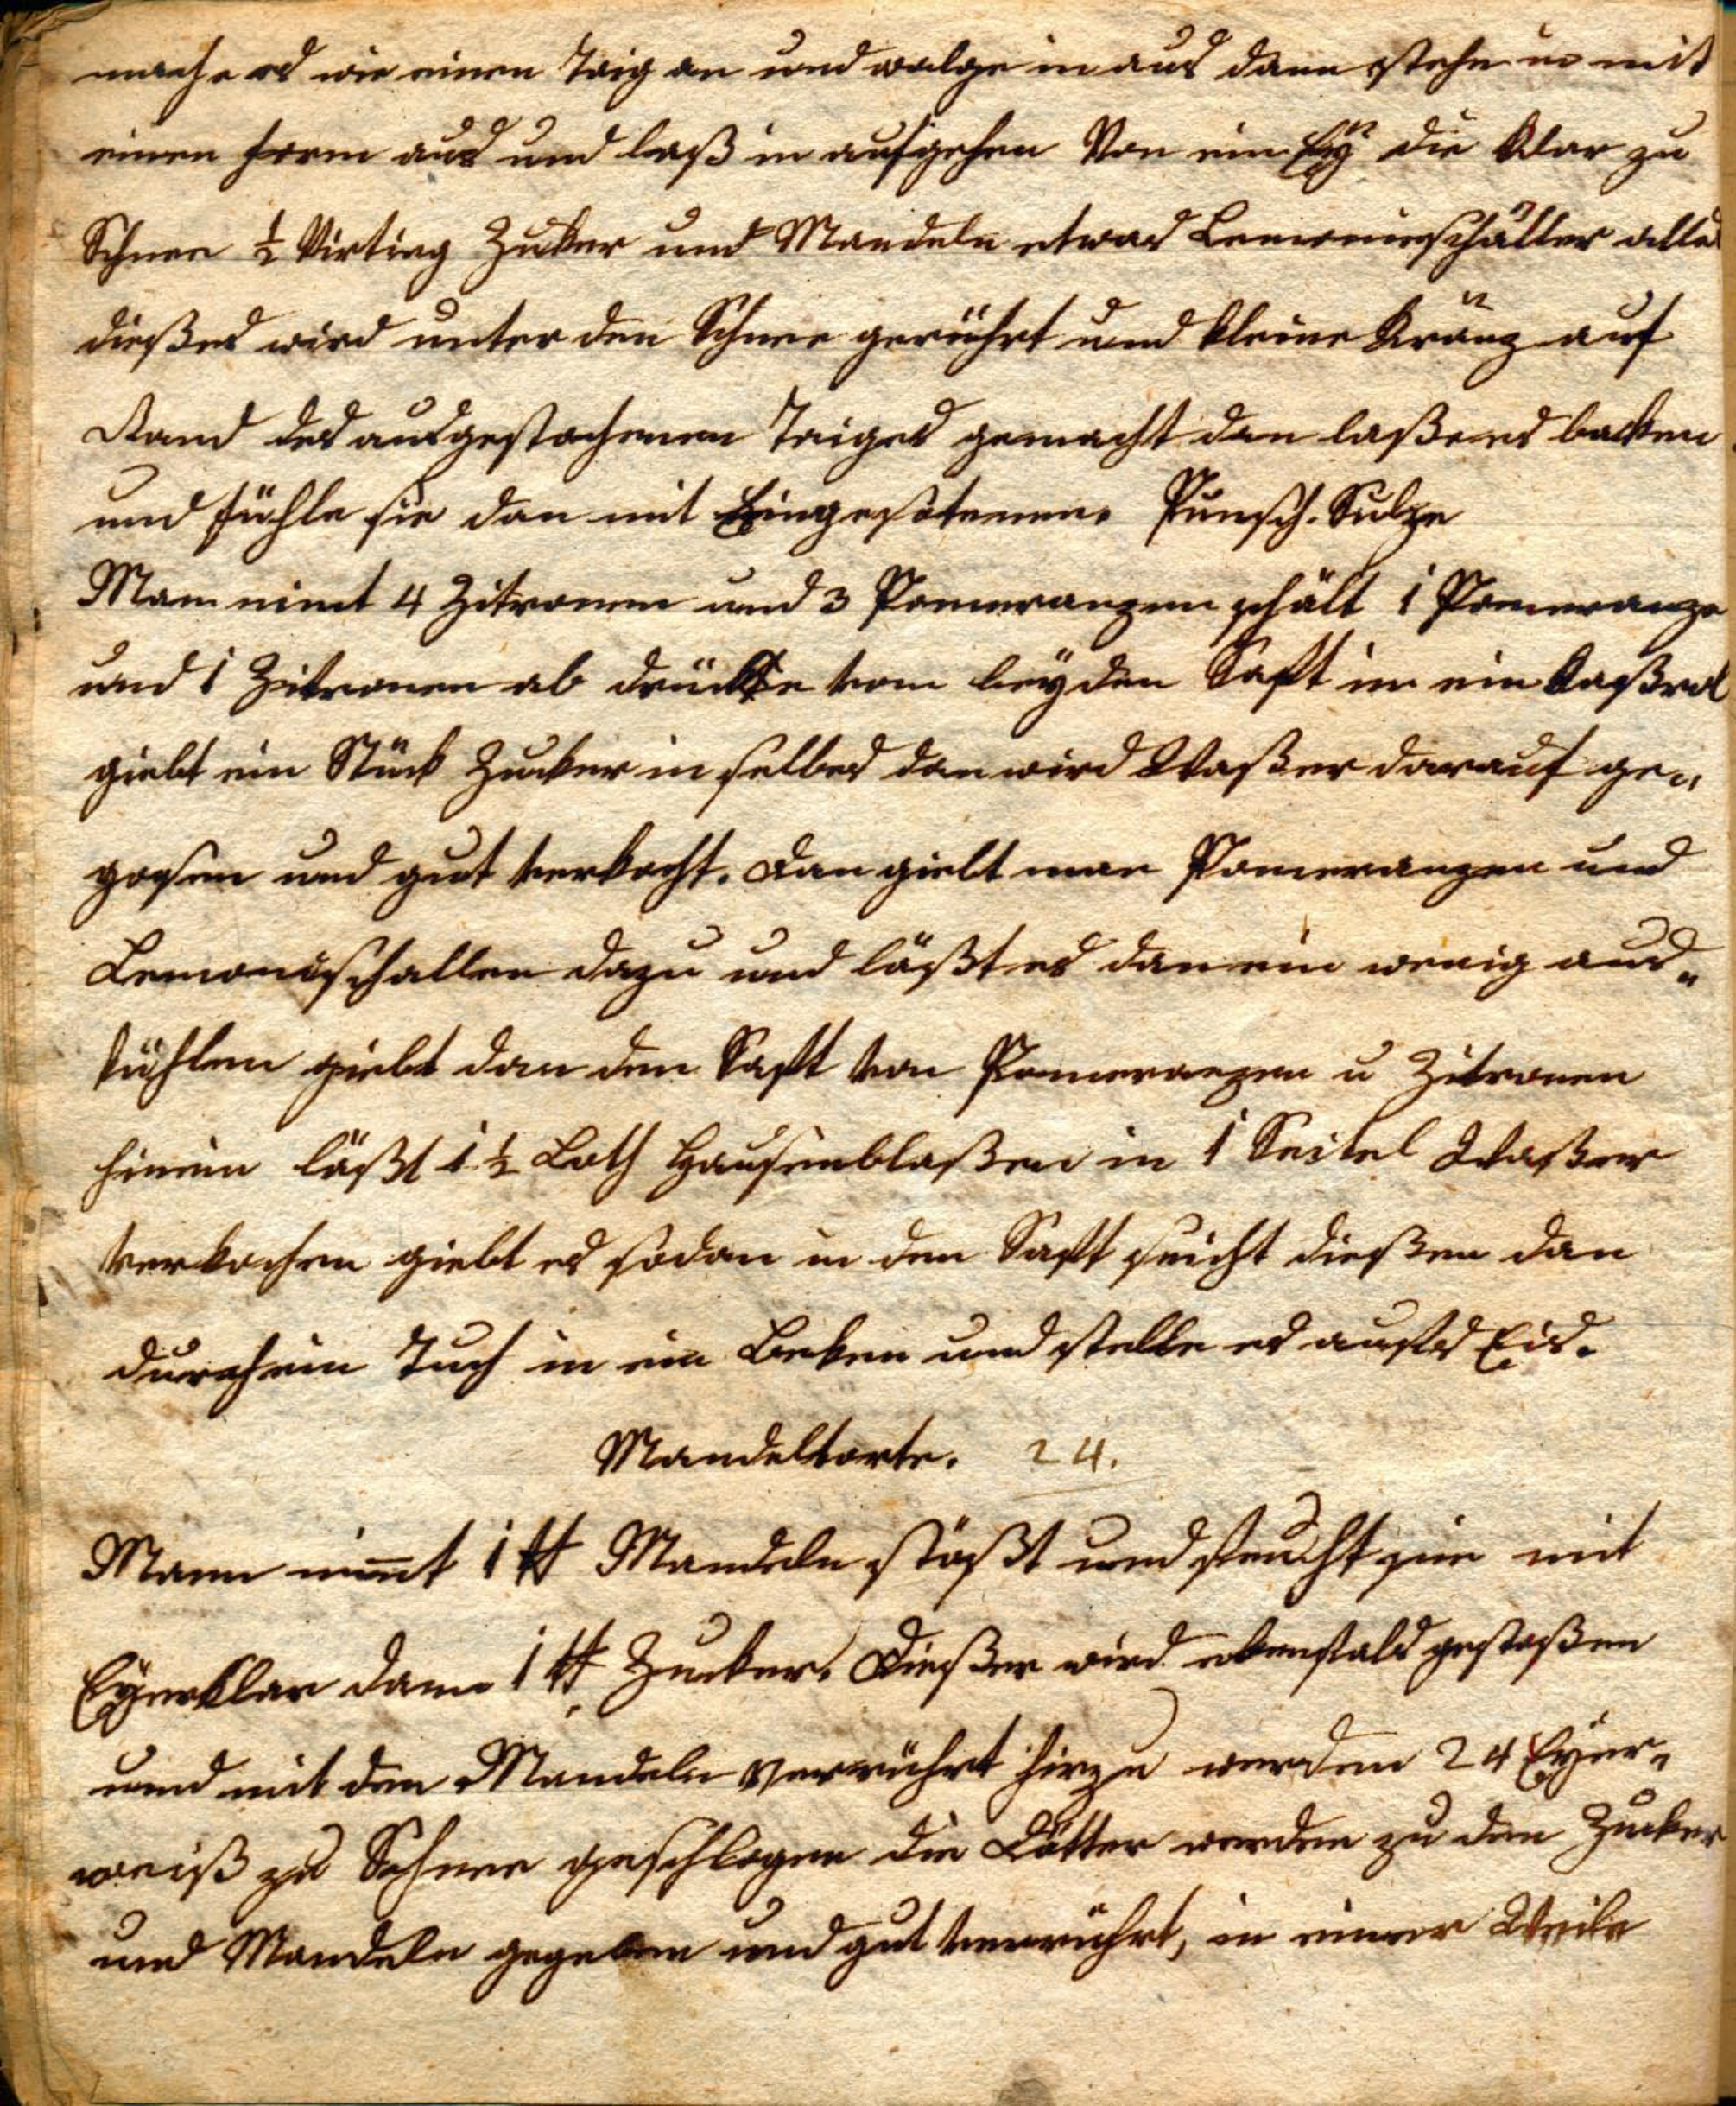 mache es wie einen Taig an und walge in aus dann steche in mit
einen form aus und laß in aufgehen Von ein Ey die Klar zu
Schnee ½ Virting Zuker und Mandeln etwas Lemonieschäller alles
dießes wird unter den Schnee gerührt und kleine Kränz auf
Rand des ausgestochenen Taiges gemacht dan laße es backen
und fühle sie dan mit Eingesotenem. Punsch. Sulze
Man nimt 4 Zitronen und 3 Pomeranzen schält 1 Pomeranze
und 1 Zitronen ab drückt vom beyden Saft in ein Kaßrol
giebt ein Stück Zucker in selbes dan wird Waßer darauf ge„
goßen und gut verkocht. dan giebt man Pomeranzen und
Lemonischallen dazu und läßt es dan ein wenig aus„
kühlen giebt dan den Saft von Pomeranzen u Zitronen
hinein läßt 1 ½ Loth Hausenblaßen in 1 Seitel Waßer
verkochen giebt es sodan in den Saft seicht dießen dan
durch ein Tuch in ein Beken und stelle es aufs Eis.
Mandeltorte. 24.
Mann nim̅t 1 ℔ Mandeln stößt und feucht sie mit
Eyerklar dann 1 ℔ Zucker. Dießer wird ebenfals gestoßen
und mit den Mandeln verrührt hirzu werden 24 Eyer„
weiß zu Schnee geschlagen die Dötter werden zu den Zucker
und Mandeln gegeben und gut verrührt, in einer Weile